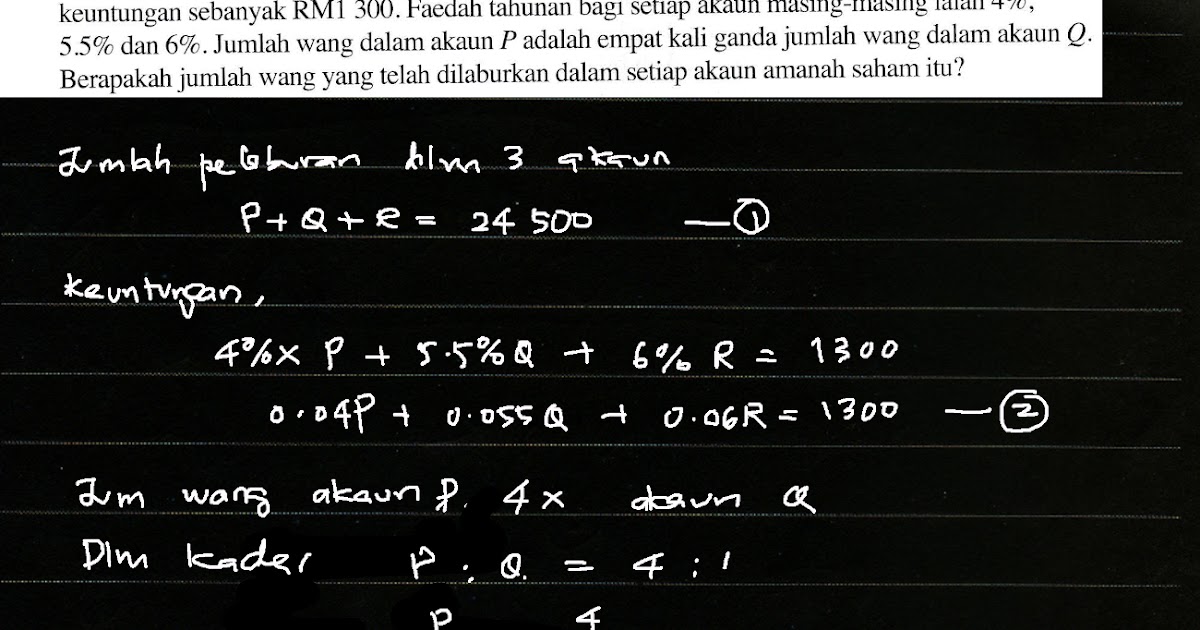 keuntungan sebanyak RM1 300. Faedah tahunan bagi setiap akaun masing-masing ialah 4%,
5.5% dan 6%. Jumlah wang dalam akaun P adalah empat kali ganda jumlah wang dalam akaun Q.
Berapakah jumlah wang yang telah dilaburkan dalam setiap akaun amanah saham itu?
Jumlah pelaburan dlm 3 akaun
P + Q + R = 24 500 — ①
Keuntungan,
4% x P + 5.5% Q + 6% R = 1300
0.04P + 0.055Q + 0.06R = 1300 — ②
Jum wang akaun P. 4 x akaun Q
Dlm kadar P : Q = 4 : 1
P 4